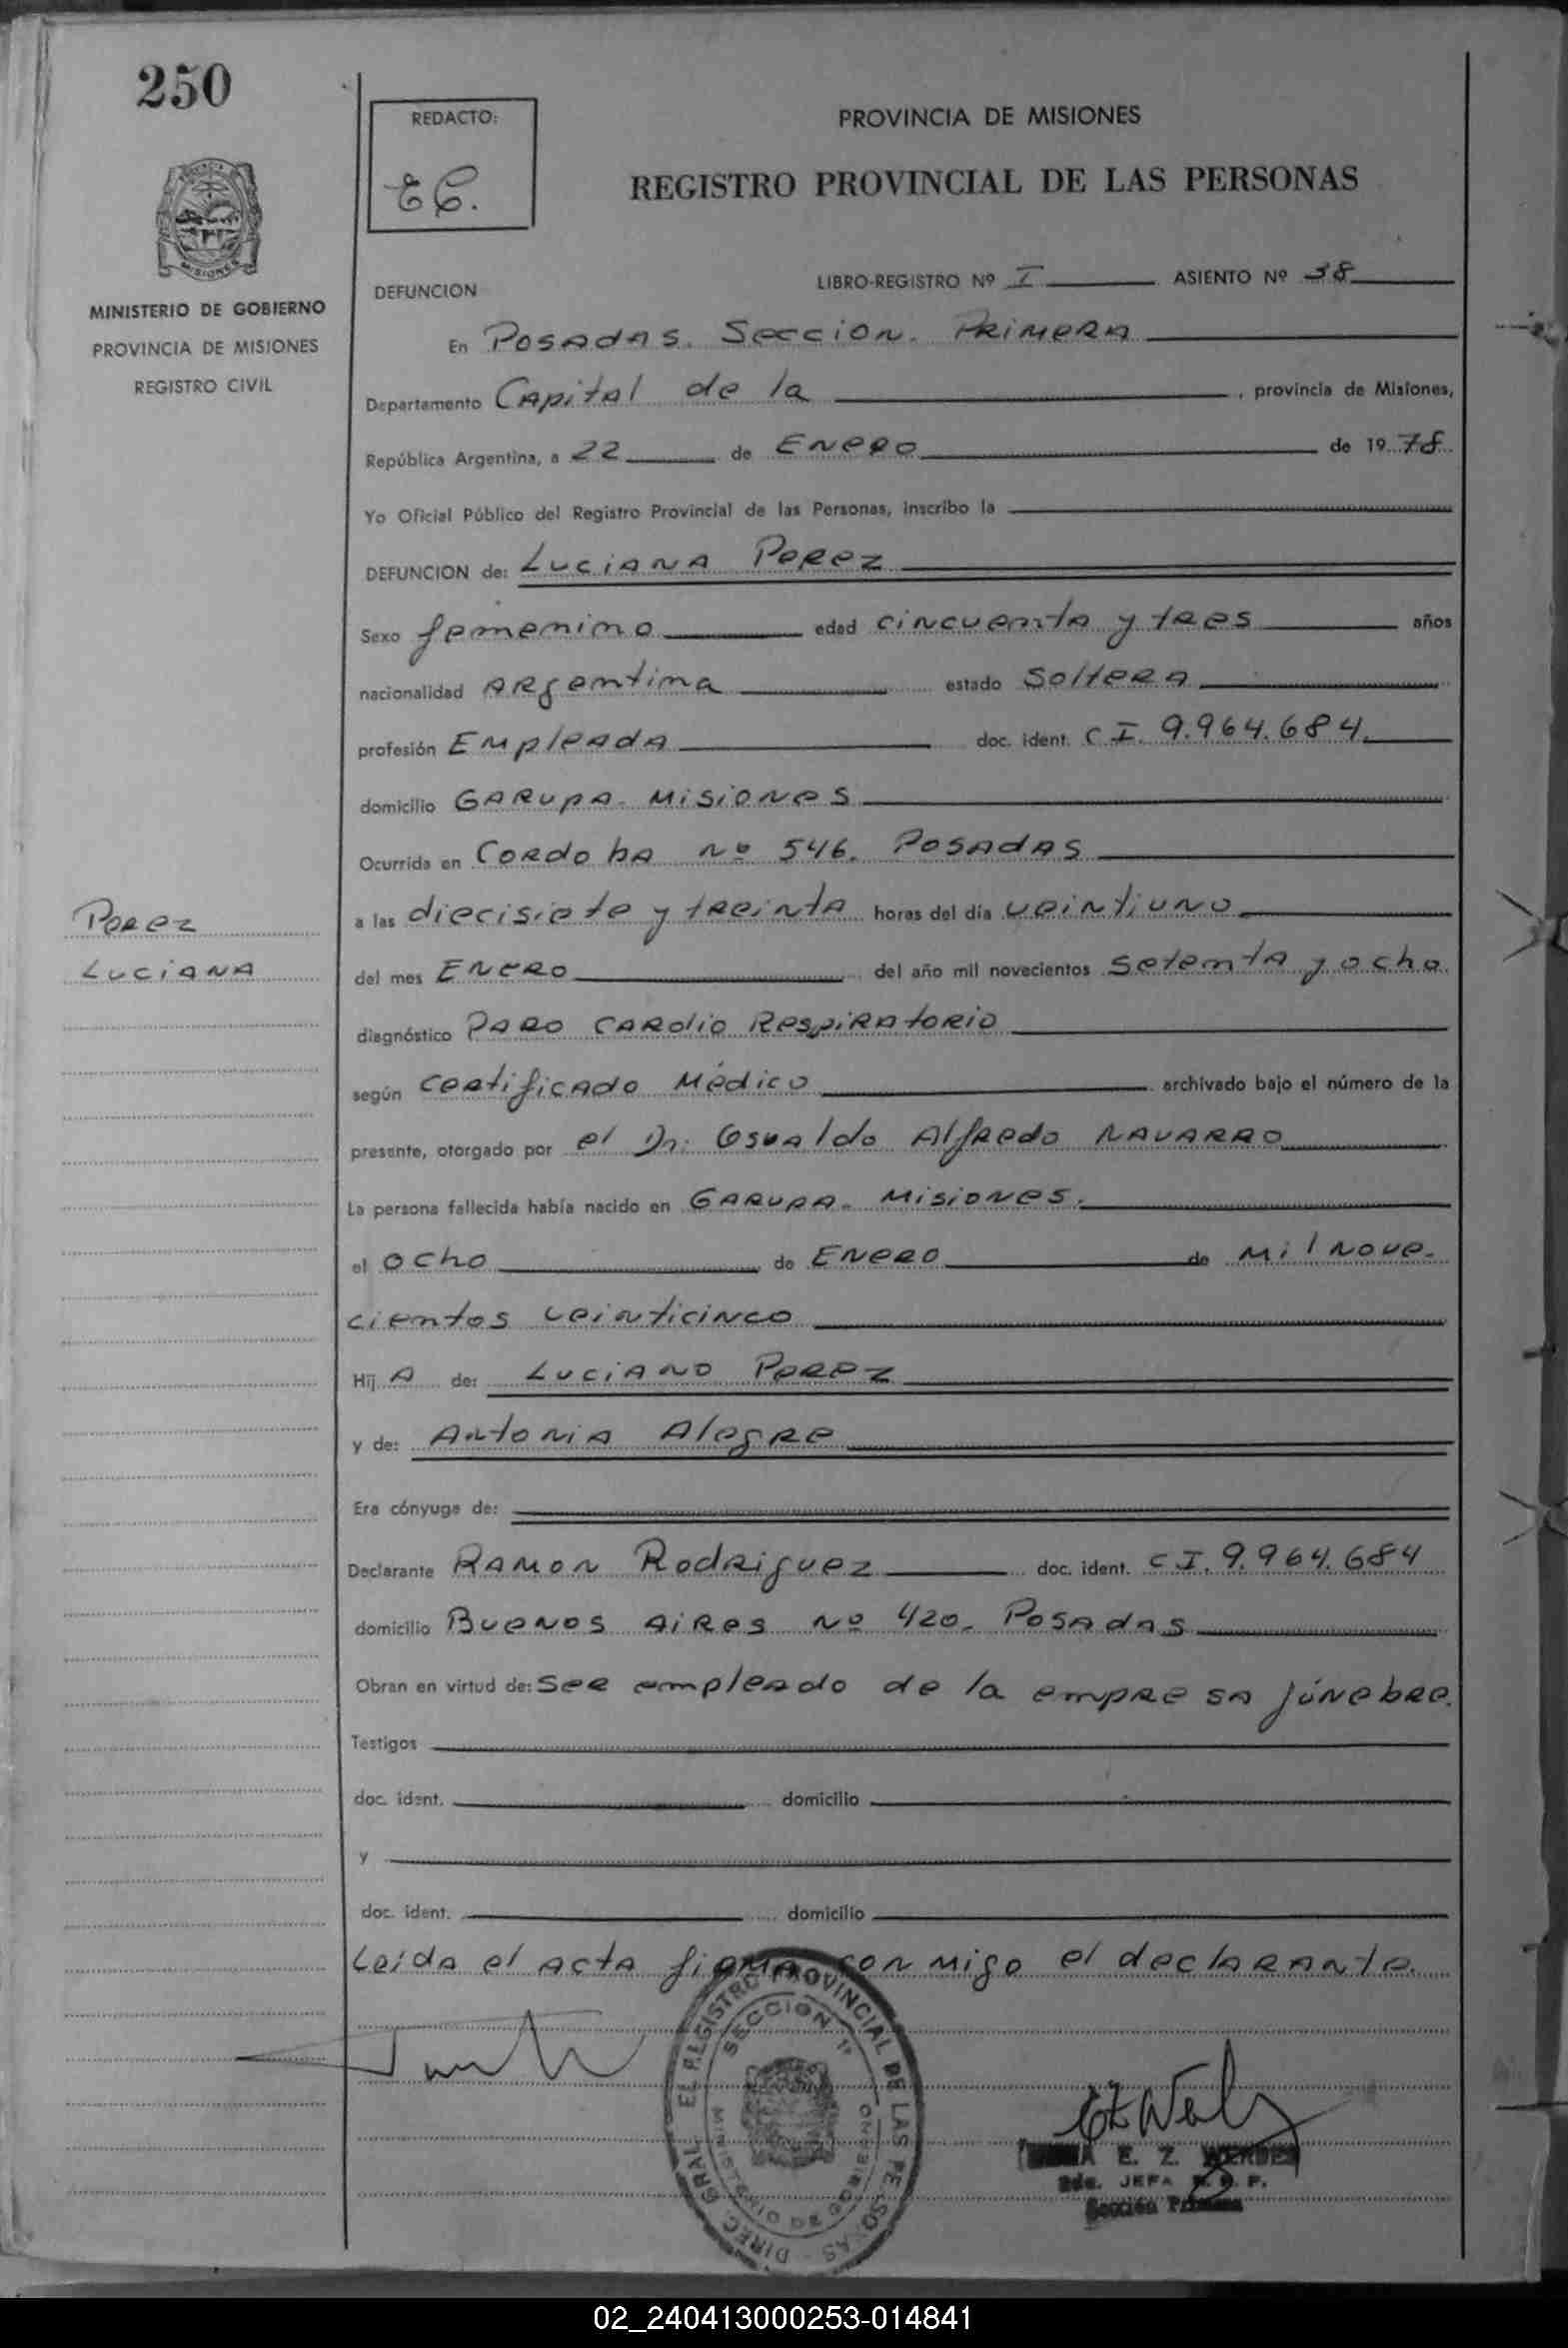 250
REDACTO:
EC.
PROVINCIA DE MISIONES
REGISTRO PROVINCIAL DE LAS PERSONAS
MISIONES
MINISTERIO DE GOBIERNO
PROVINCIA DE MISIONES
REGISTRO CIVIL
DEFUNCION
LIBRO-REGISTRO Nº I ASIENTO Nº 38
En Posadas. Seccion. Primera
Departamento Capital de la , provincia de Misiones,
República Argentina, a 22 de Enero de 1978
Yo Oficial Público del Registro Provincial de las Personas, inscribo la
DEFUNCION de: Luciana Perez
Sexo femenino edad cincuenta y tres años
nacionalidad Argentina estado Soltera
profesión Empleada doc. ident. C I. 9.964.684.
domicilio Garupa. Misiones
Ocurrida en Cordoba nº 546. Posadas
a las diecisiete y treinta horas del día veintiuno
del mes Enero del año mil novecientos setenta y ocho
diagnóstico Paro cardio Respiratorio
según certificado Médico archivado bajo el número de la
presente, otorgado por el Dr. Osvaldo Alfredo Navarro
La persona fallecida había nacido en Garupa. Misiones.
el ocho de Enero de Mil nove-
cientos veinticinco
Hij A de: Luciano Perez
y de: Antonia Alegre
Era cónyuge de:
Declarante Ramon Rodriguez doc. ident. C I. 9.964.684
domicilio Buenos Aires Nº 420. Posadas
Obran en virtud de: Ser empleado de la empresa fúnebre.
Testigos
doc. ident. domicilio
y
doc. ident. domicilio
Leída el acta firma conmigo el declarante.
Perez
Luciana
DIREC. GRAL. EL REGISTRO PROVINCIAL DE LAS PERSONAS
SECCION 1ª
MINISTERIO DE GOBIERNO
E. Z.
JEFA
Sección Primera
02_240413000253-014841